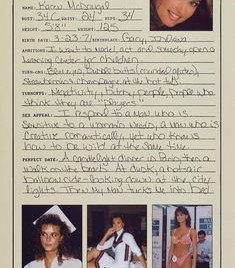 NAME: Karin McDougal
BUST: 34C WAIST: 24" HIPS: 34"
HEIGHT: 5'8" WEIGHT: 125
BIRTH DATE: 3-23-7 Gary, Indiana
AMBITIONS: I want to model, act and someday open a
learning center for children.
TURN-ONS:
Strawberries & champagne in the hot tub!
TURNOFFS: Negativity, bitchy people, people who
think they are "Players"
SEX APPEAL: I respond to a man who is
Sensitive to a woman's needs, a man who is
Creative romantically, yet who knows
how to be wild at the same time.
PERFECT DATE: A candlelight dinner in Paris, then a
walk on the beach. At dusk, a hot air
balloon ride - looking down at the city
lights. Then My Man tucks me into bed.